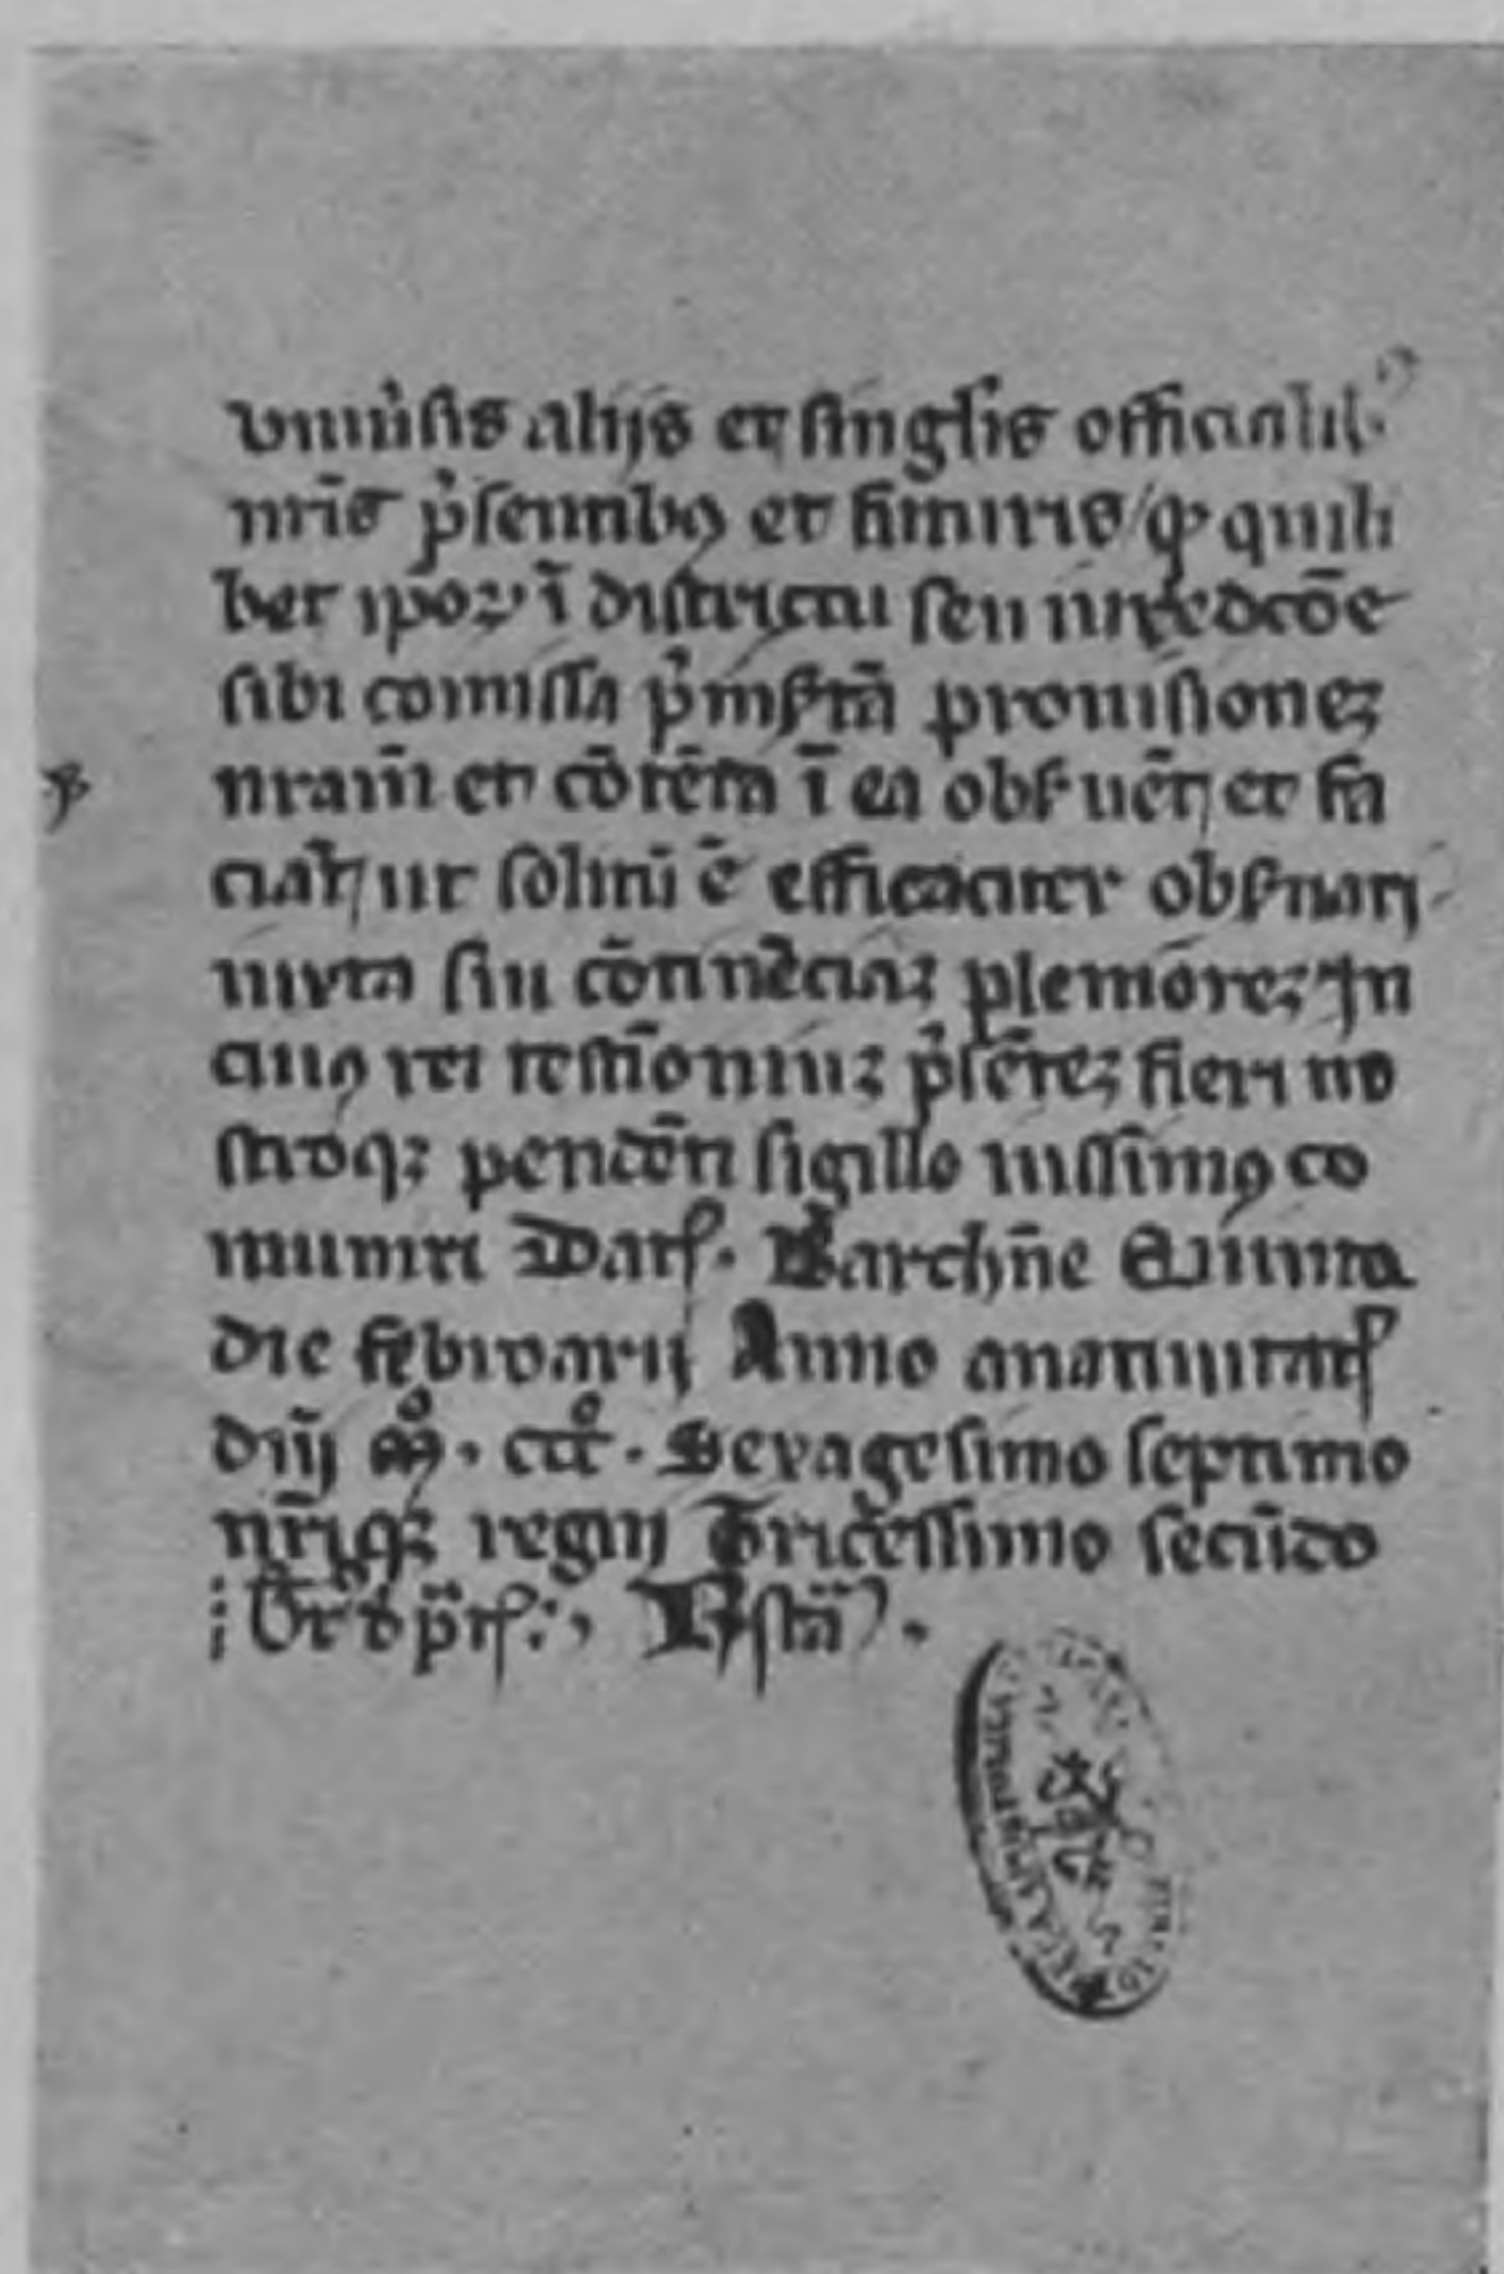 vniu̾sis alijs et singlis̄ officialib⁹
nr̄is p̾sentibꝯ et futuris / qͥ quili
bet ip̄oꝝ ī districtu seu iur̄edcōe
sibi comissa p̾insertā prouisionez
nram̄ et cōtēta ī ea obseruēt et fa
ciāt ut solitū ē efficaciter obseruari
iuxta sui cōtinēciaz pleniorez In
cuiꝯ rei testīoniuz p̾sētez fieri no
stroqꝫ pendēti sigillo iussimꝯ co
muniri Datꝭ. Barchn̄e Quinta
die febroarij Anno anatiuitatꝭ
dn̄j Mº. cccº. Sexagesimo septimo
nr̄iqꝫ regnj Tricessimo secūdo